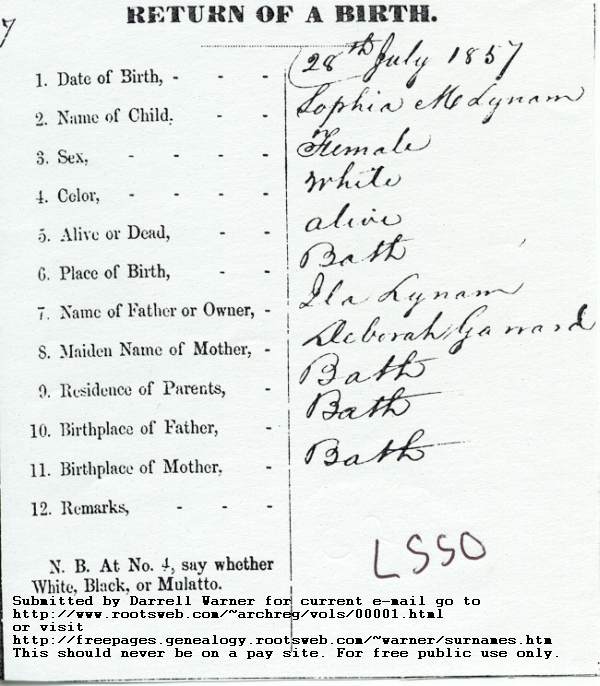 RETURN OF A BIRTH.
1. Date of Birth, - - - 28th July 1857
2. Name of Child, - - Sophia M Lynam
3. Sex, - - - - Female
4. Color, - - - - White
5. Alive or Dead, - - alive
6. Place of Birth, - - Bath
7. Name of Father or Owner, - Ila Lynam
8. Maiden Name of Mother, - Deborah
9. Residence of Parents, - Bath
10. Birthplace of Father, - Bath
11. Birthplace of Mother, - Bath
12. Remarks, - - -
N. B. At No. 4, say whether
White, Black, or Mulatto.
LSSO
Submitted by Darrell Warner for current e-mail go to
http://www.rootsweb.com/~archreg/vols/00001.html
or visit
http://freepages.genealogy.rootsweb.com/~warner/surnames.htm
This should never be on a pay site. For free public use only.